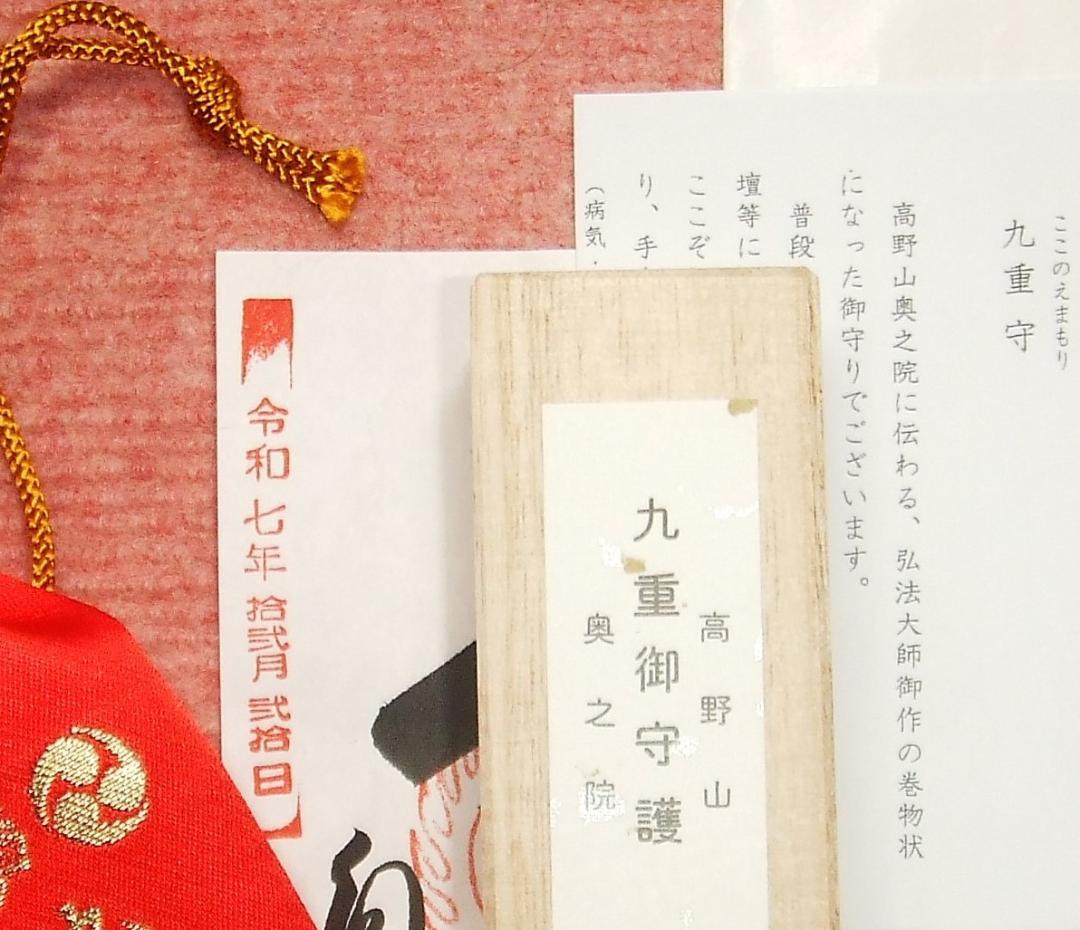 ここのえまもり
九重守
高野山奥之院に伝わる、弘法大師御作の巻物状
になった御守りでございます。
普段
壇等に
ここぞ
り、手
(病気・
高野山
九重御守護
奥之院
令和七年拾弐月弐拾日